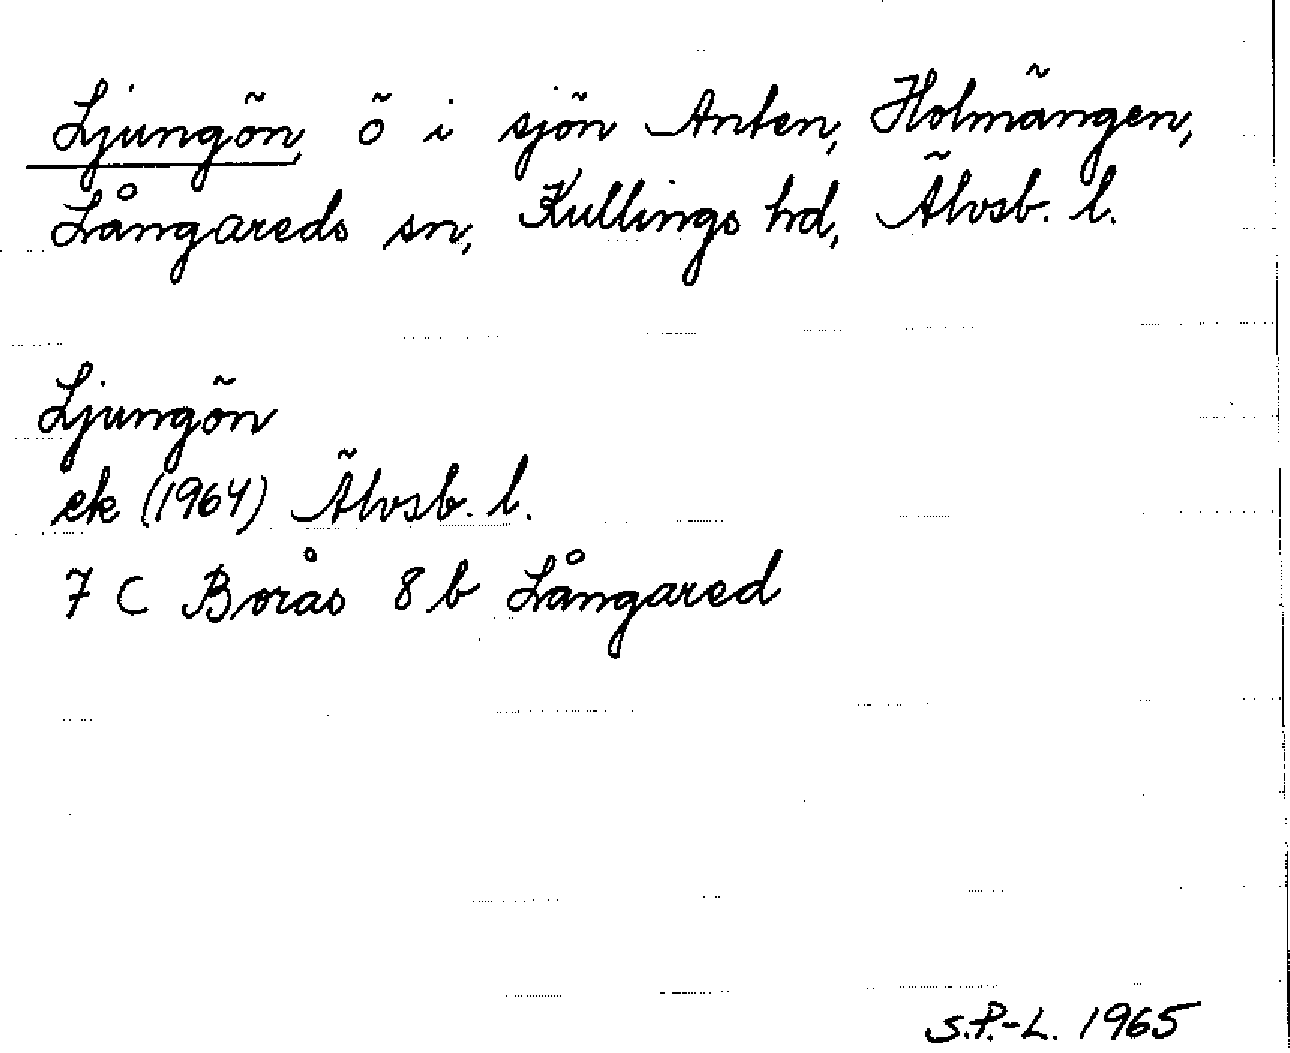 Ljungön, ö i sjön Anten, Holmängen,
Långareds sn, Kullings hd, Älvsb. l.
Ljungön
ek (1964) Älvsb. l.
7 C Borås 8 b Långared
S.P.-L. 1965